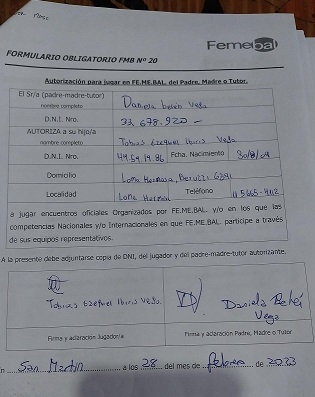 Femebal
FORMULARIO OBLIGATORIO FMB Nº 20
Autorización para jugar en FE.ME.BAL. del Padre, Madre o Tutor.
El Sr/a (padre-madre-tutor) Daniela belén Vega
nombre completo
D.N.I. Nro. 33.678.920
AUTORIZA a su hijo/a Tobias Ezequiel Ibiris Vega
nombre completo
D.N.I. Nro. Fcha. Nacimiento
Domicilio Loma Hermosa,
Localidad Loma Hermosa Teléfono
a jugar encuentros oficiales Organizados por FE.ME.BAL. y/o en los que las
competencias Nacionales y/o Internacionales en que FE.ME.BAL. participe a través
de sus equipos representativos.
A la presente debe adjuntarse copia de DNI, del jugador y del padre-madre-tutor autorizante.
Tobias Ezequiel Ibiris Vega. Daniela Belén
Vega
Firma y aclaración Jugador/a Firma y aclaración Padre, Madre o Tutor
San Martin a los 28 del mes de febrero de 2023